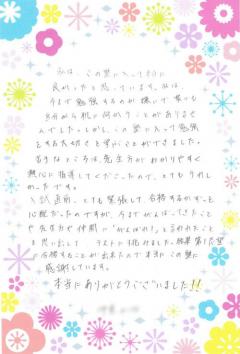 私は、この塾に入って本当に
良かったと思っています。私は
今まで勉強するのが嫌いで家でも
自分から机に向かうことがありませ
んでした。しかし、この塾に入って勉強
をする大切さを学ぶことができました。
苦手なところは、先生方がわかりやすく
熱心に指導してくださったので、とてもうれし
かったです。
入試直前、とても緊張して、合格するかずっと
心配だったのですが、今までがんばってきたこと
や先生方や仲間に「がんばれ!」と言われたこと
を思い出して テストに挑めました。結果、第1志望
に合格することが出来たので本当にこの塾に
感謝しています。
本当にありがとうございました!!